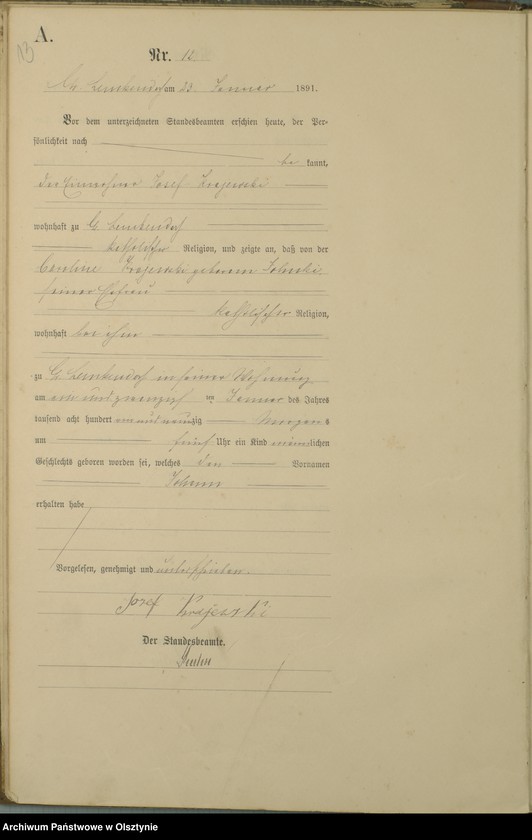 A.
13
Nr. 12
Gr. Lemkendorf am 23. Januar 1891.
Vor dem unterzeichneten Standesbeamten erschien heute, der Per-
sönlichkeit nach
be kannt,
der Einwohner Josef Krajewski
wohnhaft zu G. Lemkendorf
katholischer Religion, und zeigte an, daß von der
Caroline Krajewski geborenen
seiner Ehefrau
katholischer Religion,
wohnhaft bei ihm
zu G. Lemkendorf in seiner Wohnung
am ein und zwanzigsten Januar des Jahres
tausend acht hundert ein und neunzig Morgens
um fünf Uhr ein Kind männlichen
Geschlechts geboren worden sei, welches den Vornamen
Johann
erhalten habe
Vorgelesen, genehmigt und unterschrieben.
Jozef Krajewski
Der Standesbeamte.
Archiwum Państwowe w Olsztynie